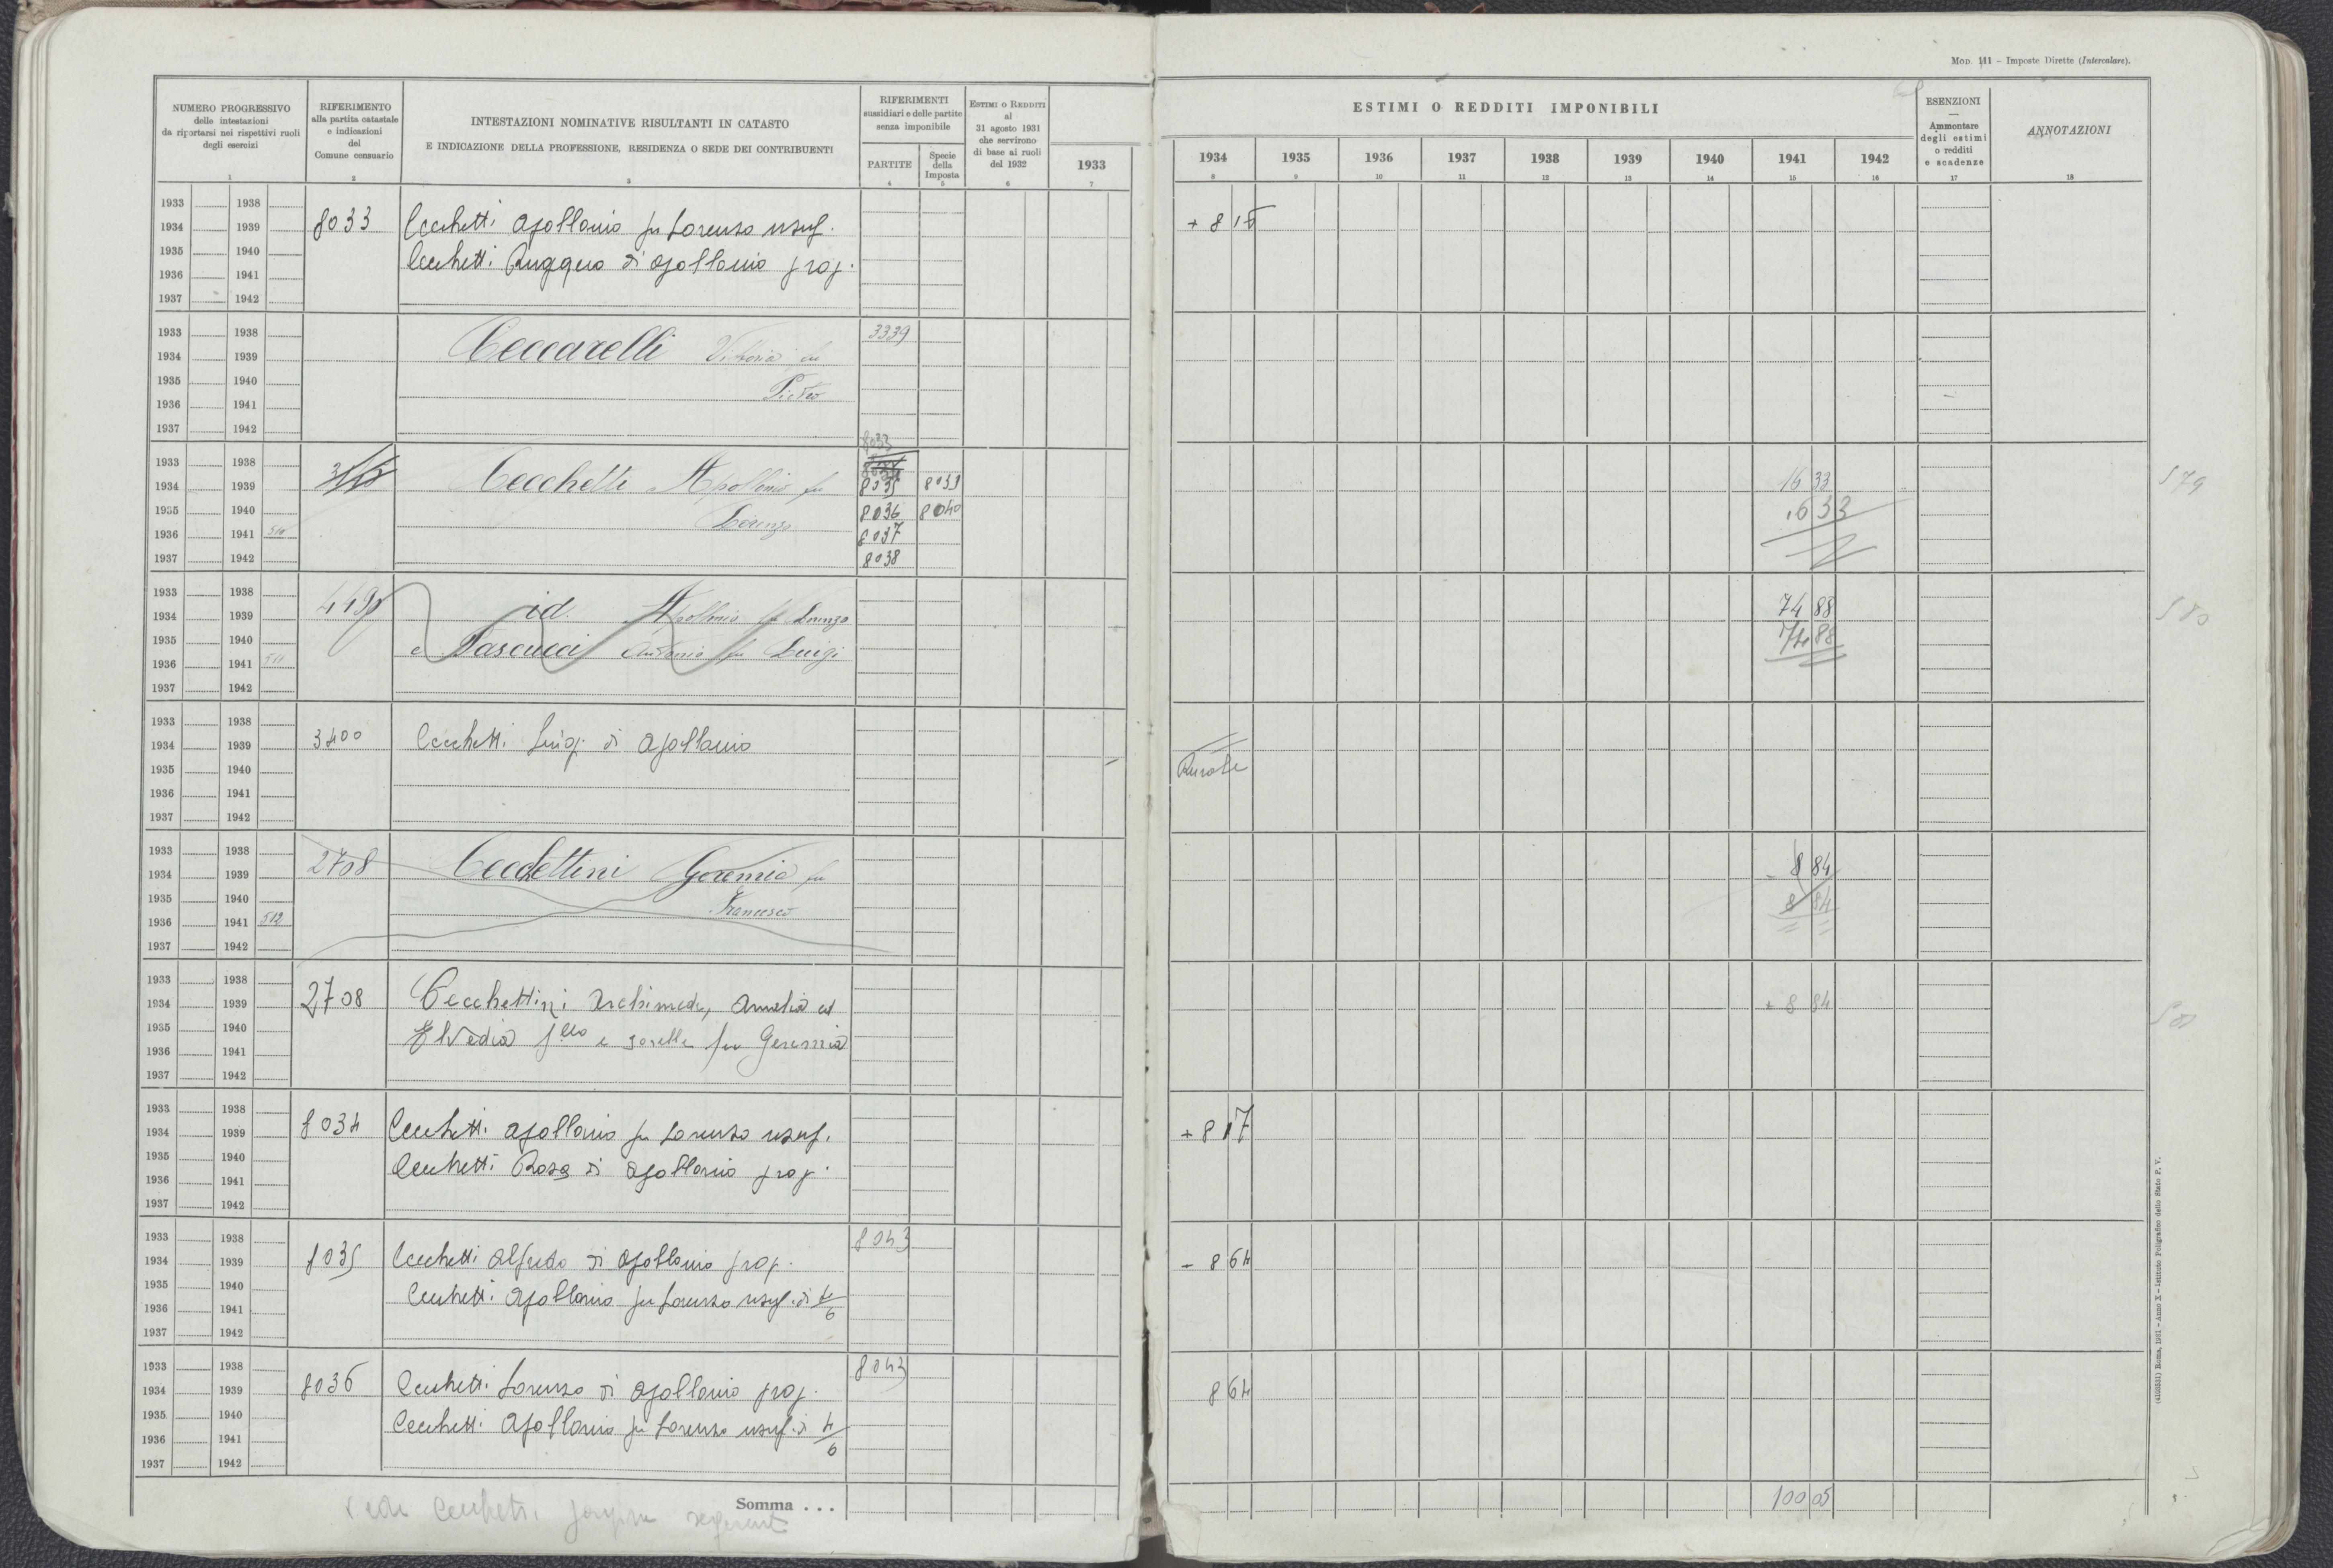 Mod. 111 – Imposte Dirette (Intercalare).
NUMERO PROGRESSIVO delle intestazioni da riportarsi nei rispettivi ruoli degli esercizi
RIFERIMENTO alla partita catastale e indicazioni del Comune censuario
INTESTAZIONI NOMINATIVE RISULTANTI IN CATASTO
E INDICAZIONE DELLA PROFESSIONE, RESIDENZA O SEDE DEI CONTRIBUENTI
RIFERIMENTI sussidiari e delle partite senza imponibile
PARTITE
Specie della Imposta
Estimi o Redditi al 31 agosto 1931 che servirono di base ai ruoli del 1932
ESTIMI O REDDITI IMPONIBILI
ESENZIONI — Ammontare degli estimi o redditi e scadenze
ANNOTAZIONI
1933 1934 1935 1936 1937 1938 1939 1940 1941 1942
1 2 3 4 5 6 7 8 9 10 11 12 13 14 15 16 17 18
1933 1938
1934 1939 8033 Cecchetti Apollonio fu Lorenzo usuf. + 8
1935 1940 Cecchetti Ruggero di Apollonio prop.
1936 1941
1937 1942
1933 1938 3339
1934 1939 Ceccarelli Vittoria fu
1935 1940 Pietro
1936 1941
1937 1942
8033
1933 1938
1934 1939 Cecchetti Apollonio fu 8035 8039 16 33 579
1935 1940 Lorenzo 8036 8040 16 33
1936 1941 510 8037
1937 1942 8038
1933 1938
1934 1939 id. Apollonio fu Lorenzo 74 88 580
1935 1940 e Pascucci Antonio fu Luigi 74 88
1936 1941 511
1937 1942
1933 1938
1934 1939 3400 Cecchetti Luigi di Apollonio
1935 1940 Rurale
1936 1941
1937 1942
1933 1938
1934 1939 2708 Cecchettini Geremia fu 8 84
1935 1940 Francesco 8 84
1936 1941 512
1937 1942
1933 1938
1934 1939 2708 Cecchettini Archimede, Amelia ed + 8 84
1935 1940 Elvedia f.llo e sorelle fu Geremia
1936 1941
1937 1942
1933 1938
1934 1939 8034 Cecchetti Apollonio fu Lorenzo usuf. + 8 17
1935 1940 Cecchetti Rosa di Apollonio prop.
1936 1941
1937 1942
1933 1938 8043
1934 1939 8035 Cecchetti Alfredo di Apollonio prop. - 8 64
1935 1940 Cecchetti Apollonio fu Lorenzo usuf. di 4/6
1936 1941
1937 1942
1933 1938 8043
1934 1939 8036 Cecchetti Lorenzo di Apollonio prop. 8 64
1935 1940 Cecchetti Apollonio fu Lorenzo usuf. di 4/6
1936 1941
1937 1942
Somma . . . 100 05
Cecchetti
(4192331) Roma, 1931 – Anno X – Istituto Poligrafico dello Stato P. V.